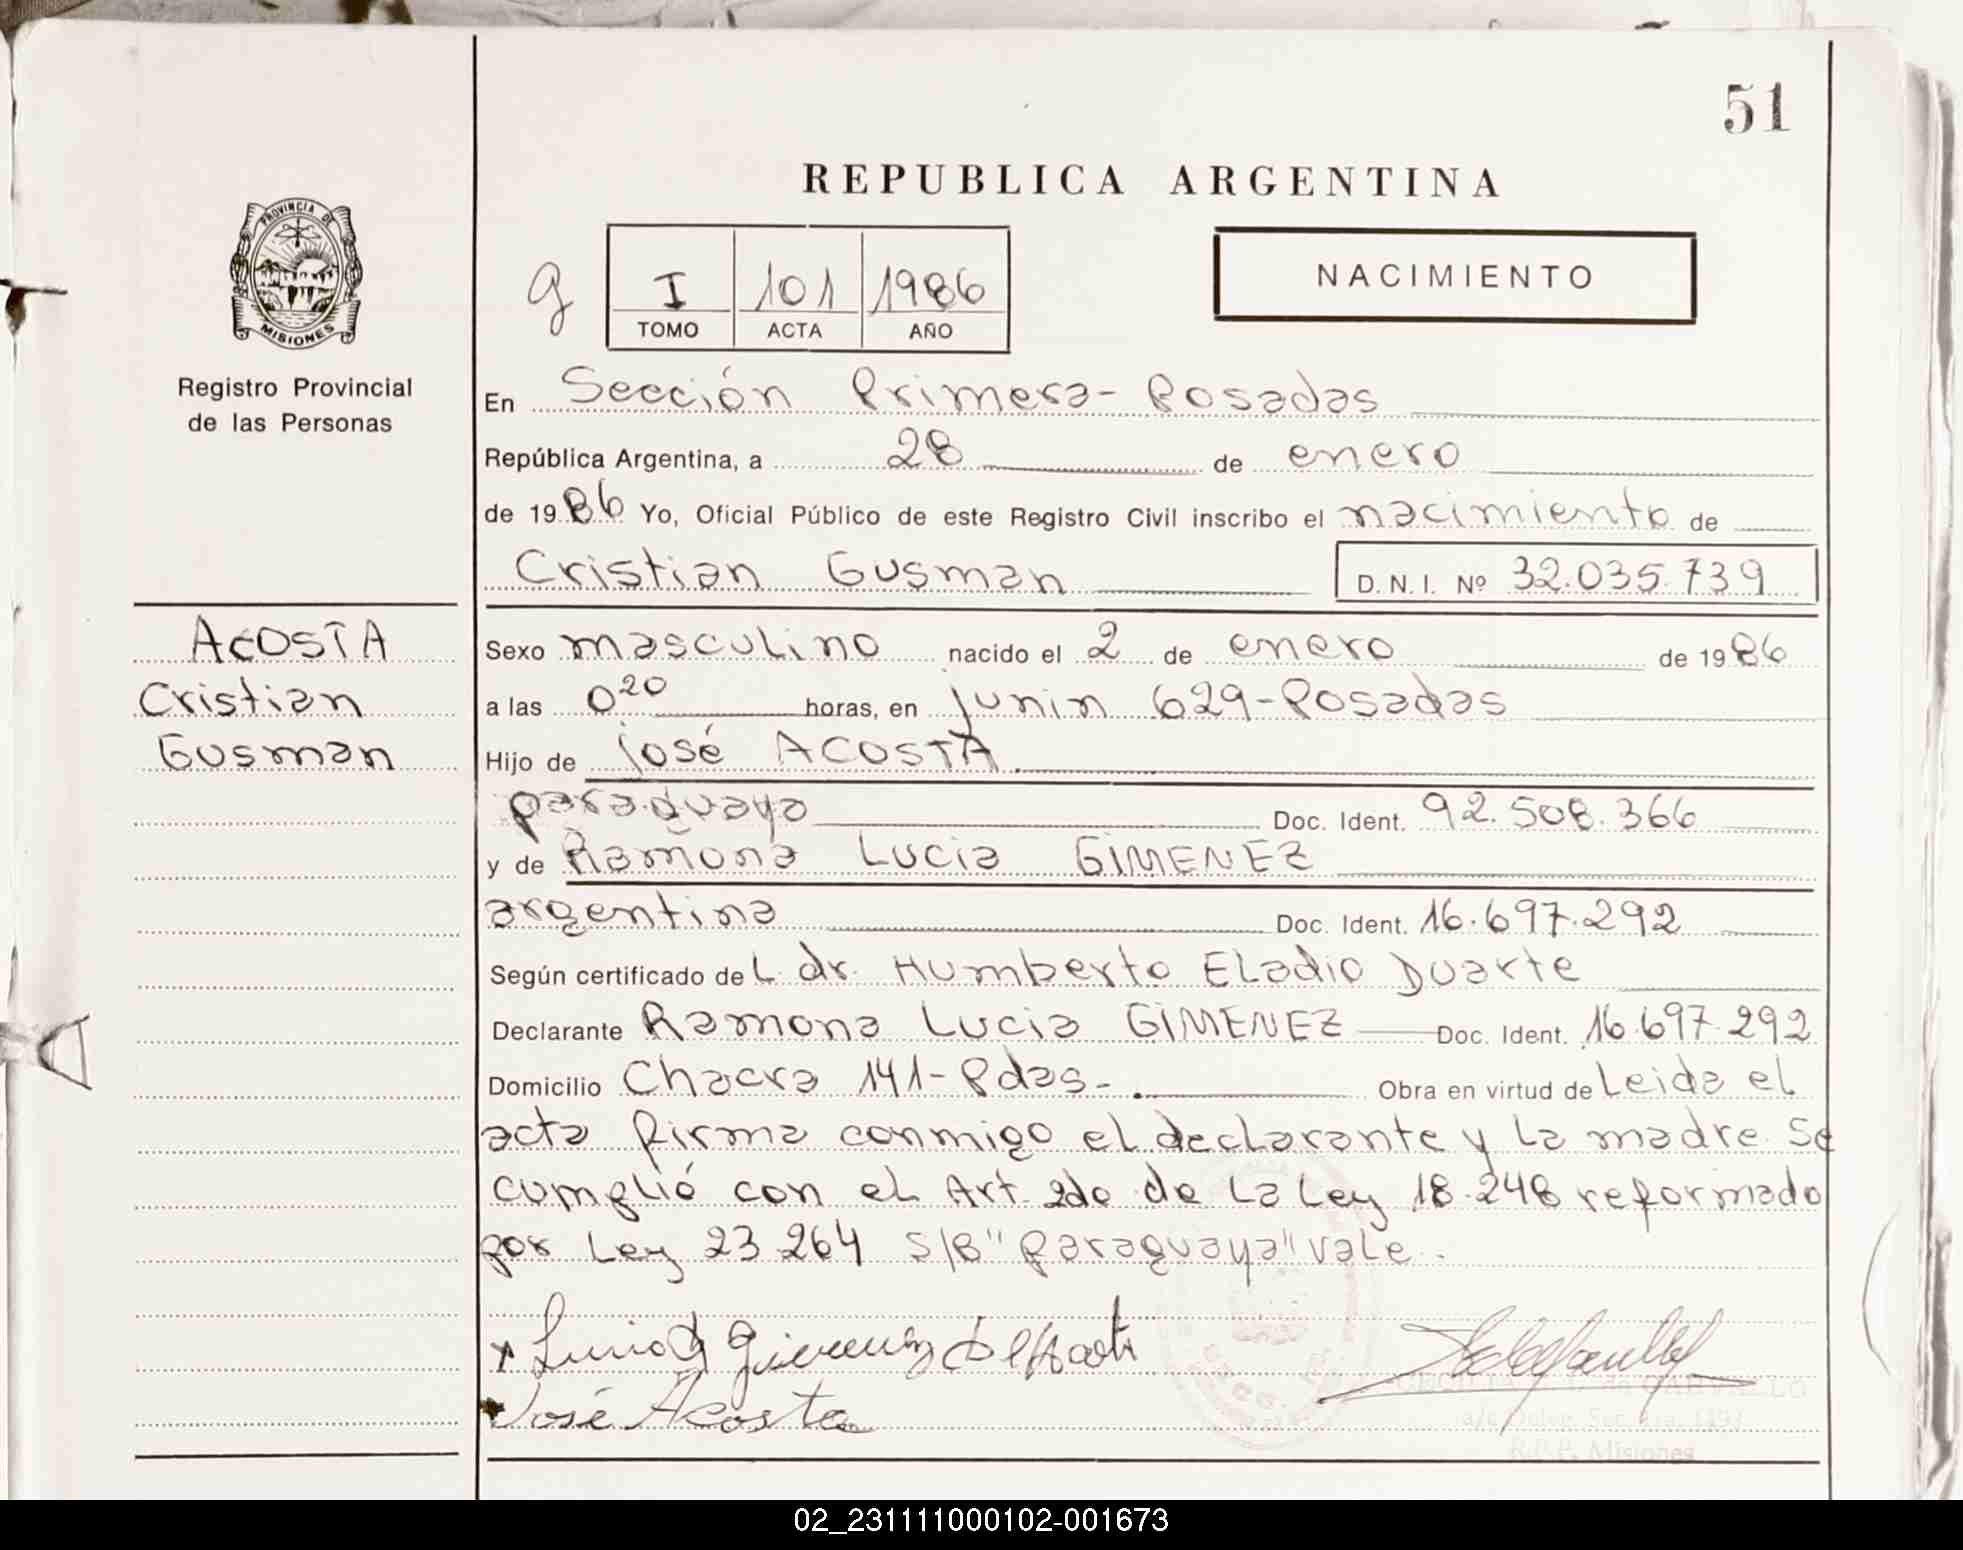 51
REPUBLICA ARGENTINA
PROVINCIA DE
MISIONES
Registro Provincial
de las Personas
g
I 101 1986
TOMO ACTA AÑO
NACIMIENTO
En Sección Primera - Posadas
República Argentina, a 28 de enero
de 1986 Yo, Oficial Público de este Registro Civil inscribo el nacimiento de
Cristian Gusman D. N. I. Nº 32.035.739
ACOSTA
Cristian
Gusman
Sexo masculino nacido el 2 de enero de 1986
a las 0 20 horas, en junin 629-Posadas
Hijo de josé ACOSTA
paraguaya Doc. Ident. 92.508.366
y de Ramona Lucia GIMENEZ
argentina Doc. Ident. 16.697.292
Según certificado del dr. Humberto Eladio Duarte
Declarante Ramona Lucia GIMENEZ Doc. Ident. 16.697.292
Domicilio Chacra 141-Pdas-. Obra en virtud de Leida el
acta firma conmigo el declarante y la madre. Se
cumplió con el Art. 2do de la Ley 18.248 reformado
por Ley 23.264 S/B "paraguaya" vale.
x Gimenez de
José Acosta
R.P.P. Misiones
02_231111000102-001673